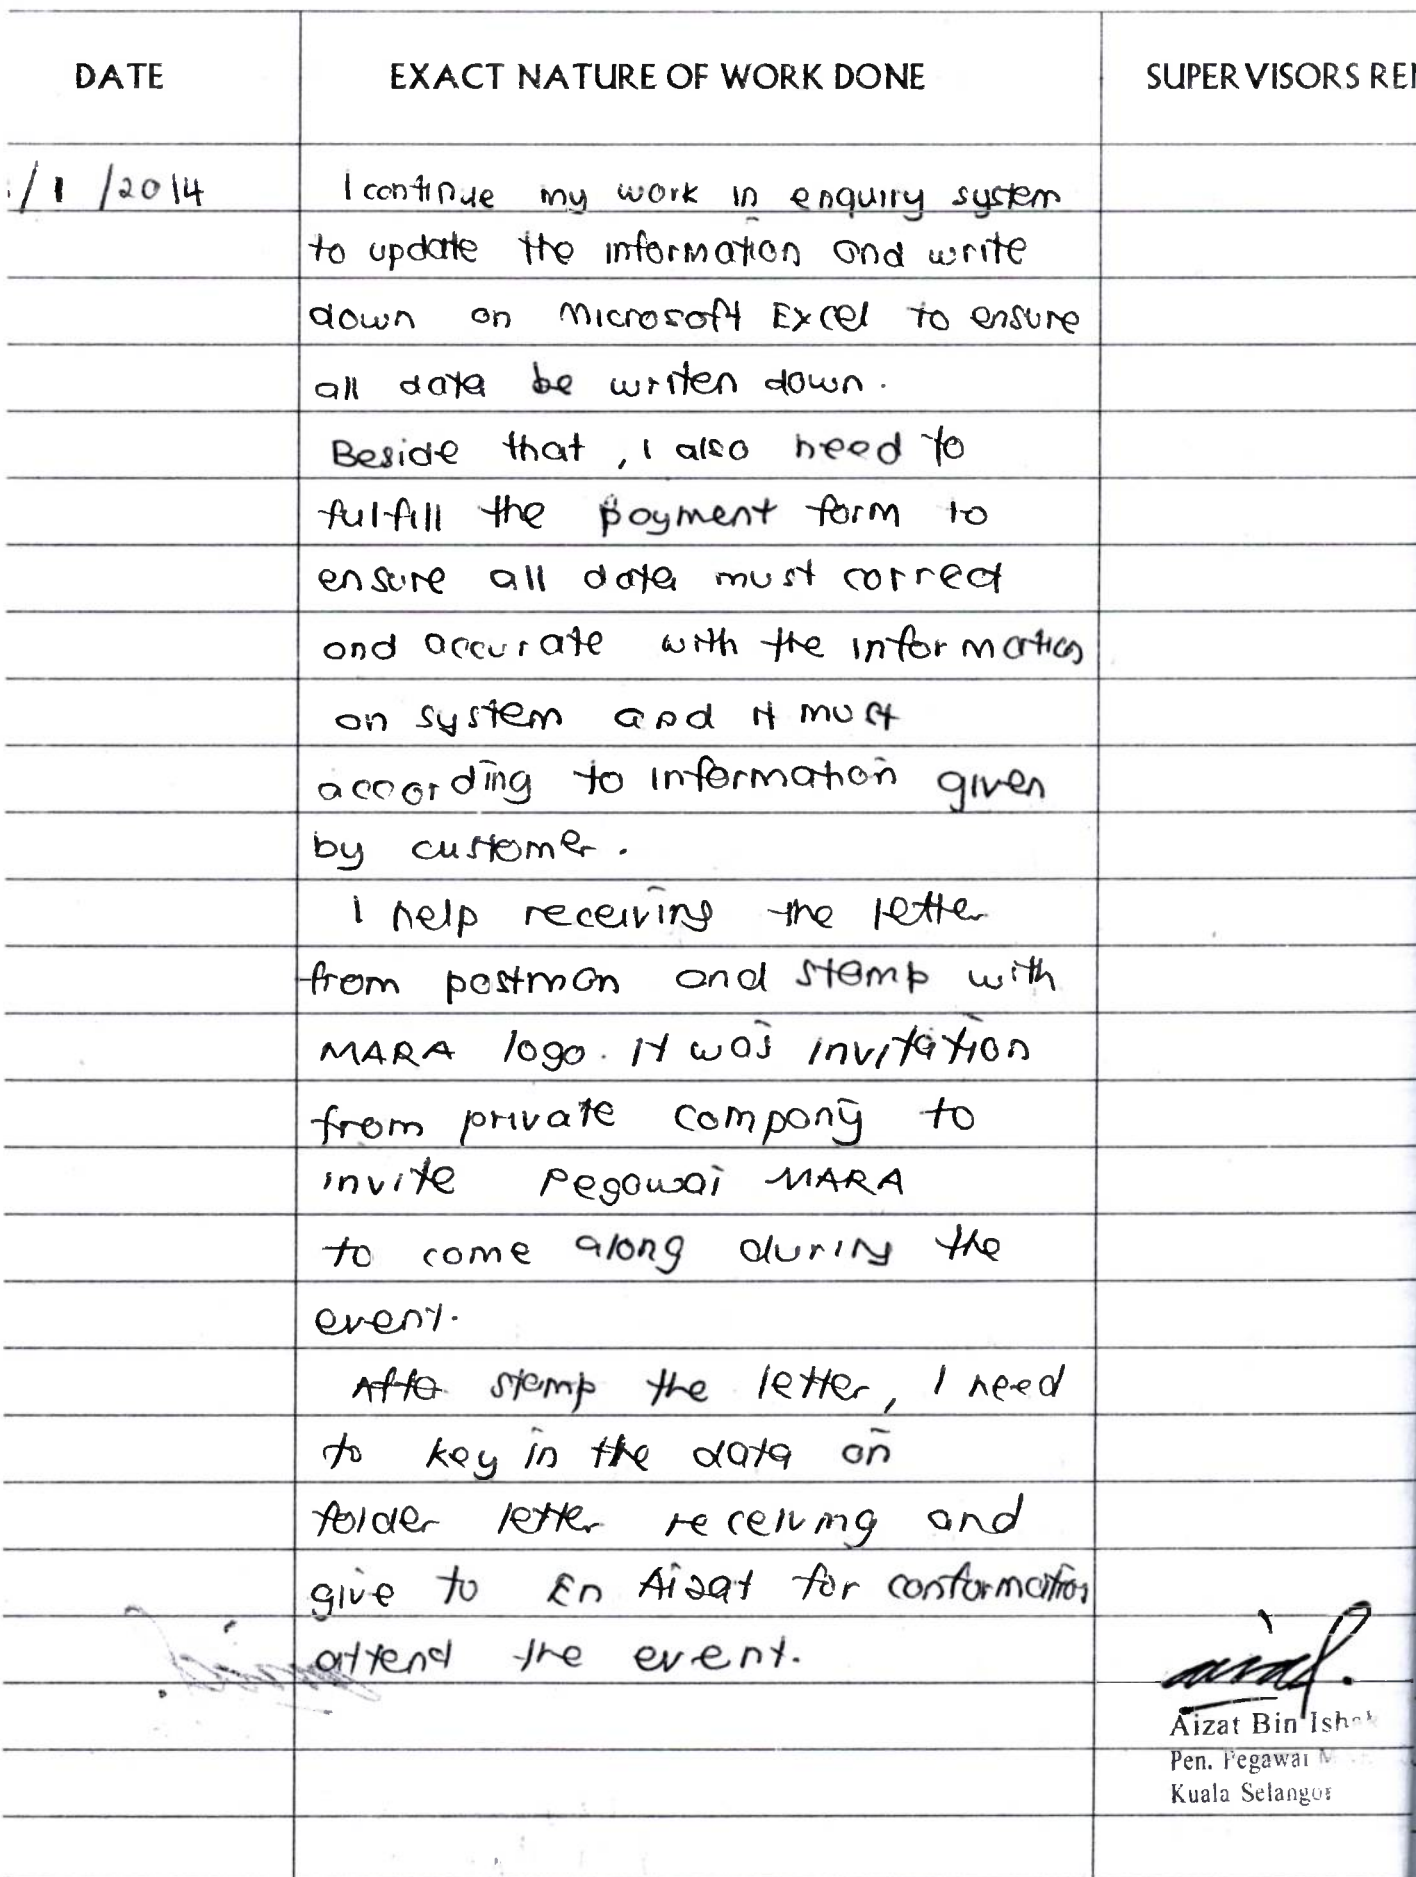 DATE EXACT NATURE OF WORK DONE SUPERVISORS REM
/1/2014 I continue my work in enquiry system
to update the information and write
down on Microsoft Excel to ensure
all data be writen down.
Beside that, I also need to
fulfill the payment form to
ensure all data must correct
and accurate with the information
on system and it must
according to information given
by customer.
I help receiving the letter
from postman and stamp with
MARA logo. It was invitation
from private company to
invite Pegawai MARA
to come along during the
event.
After stamp the letter, I need
to key in the data on
folder letter receiving and
give to En Aizat for conformation
attend the event.
Aizat Bin Ishak
Pen. Pegawai
Kuala Selangor